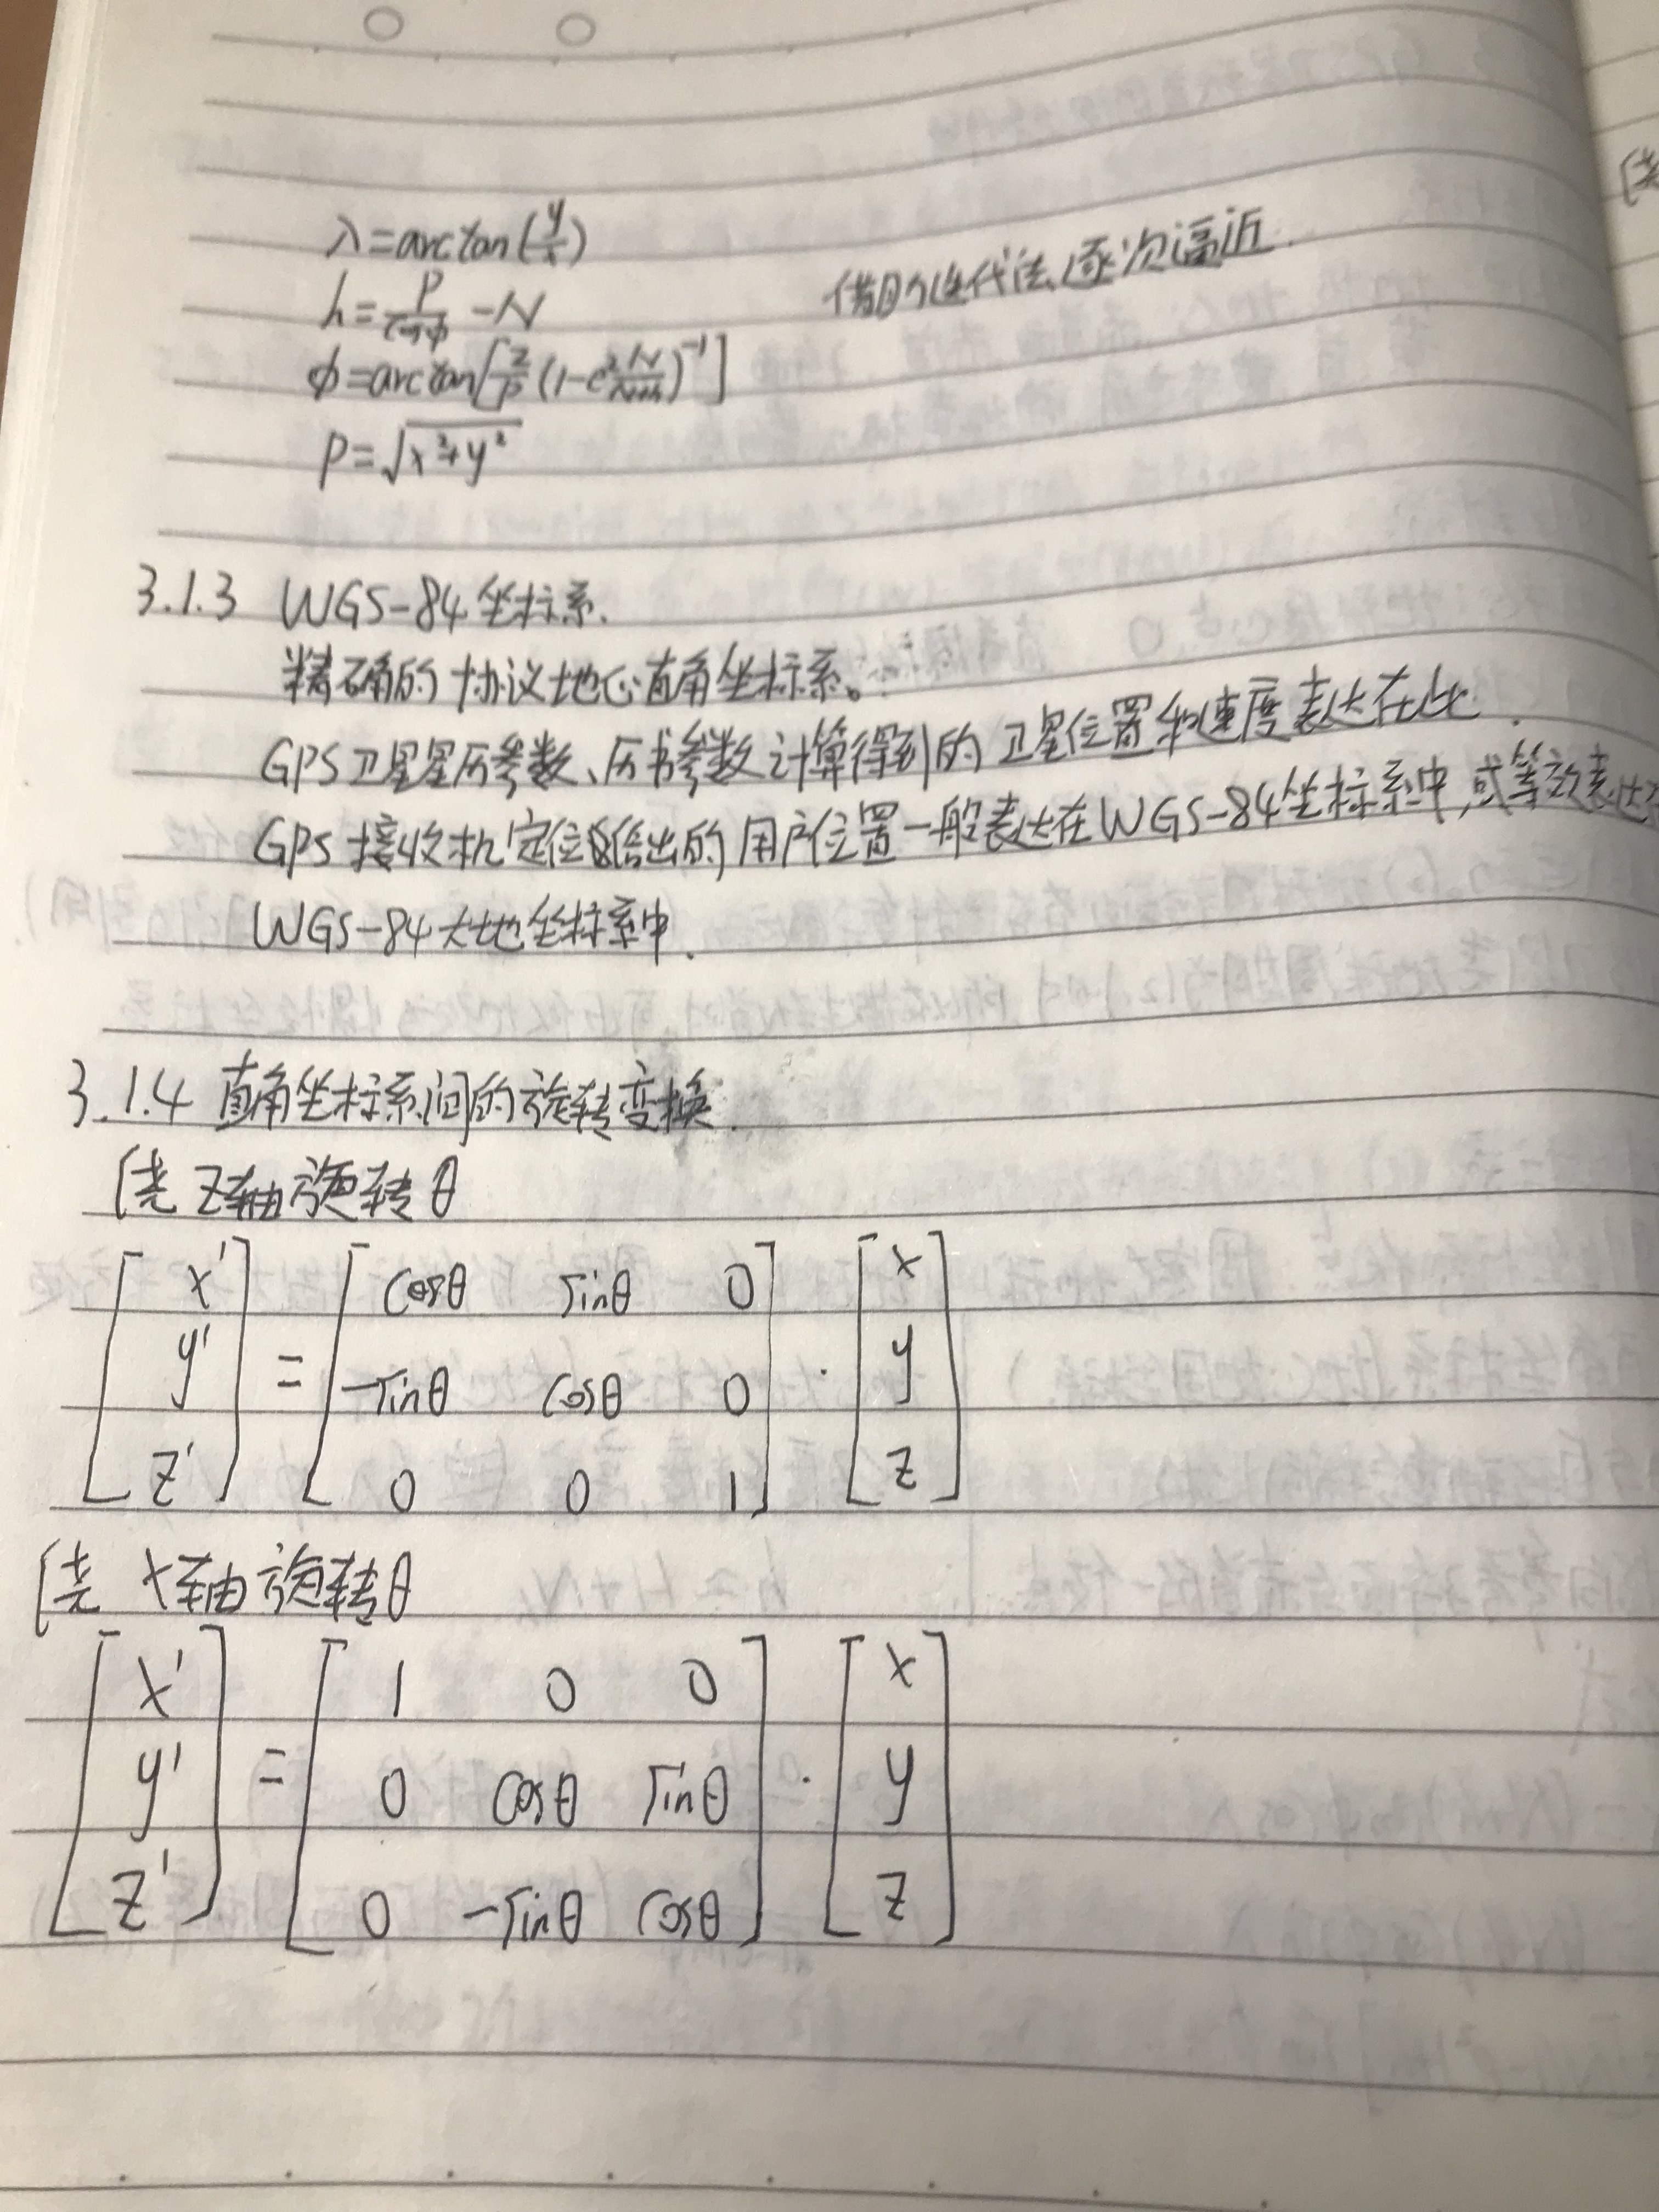 λ=arctan(y/x)
h=p/cosφ -N
借助迭代法、逐次逼近.
φ=arctan[z/p (1-e² N/(N+h))⁻¹]
p=√(x²+y²)
3.1.3 WGS-84坐标系.
精确的协议地心直角坐标系。
GPS卫星星历参数、历书参数计算得到的卫星位置和速度表达在此.
GPS接收机定位给出的用户位置一般表达在WGS-84坐标系中,或等效表达
WGS-84大地坐标系中.
3.1.4 直角坐标系间的旋转变换.
绕Z轴旋转θ
[x' y' z'] = [cosθ sinθ 0; -sinθ cosθ 0; 0 0 1] · [x y z]
绕X轴旋转θ
[x' y' z'] = [1 0 0; 0 cosθ sinθ; 0 -sinθ cosθ] · [x y z]